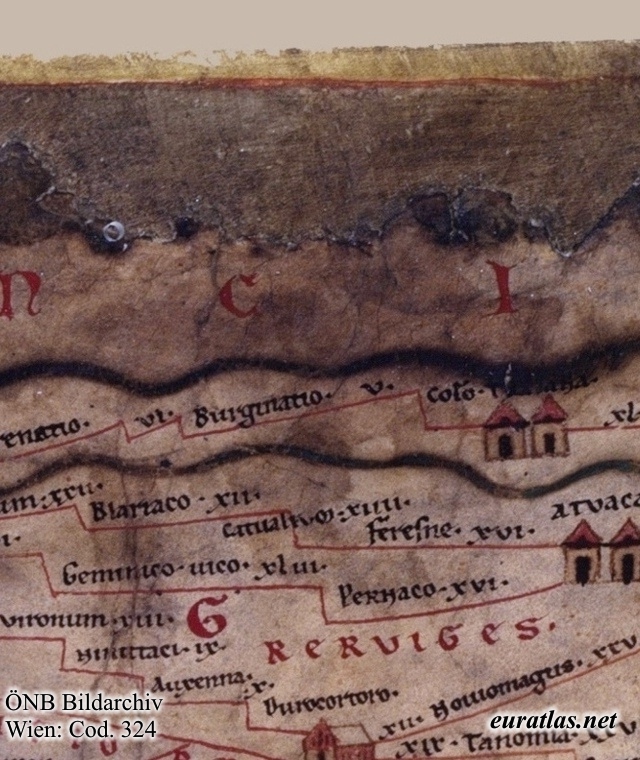 N C I
enatio. VI. Burginatio. V. Colo. Traiana. XL
um. XXII. Blariaco. XII.
Catualium. XIIII. Feresne. XVI. Atuaca
Geminico. uico. XLIII. Pernaco. XVI.
uironum. VIII. G RERVIGES.
Ninittaci. IX.
Auxenna. X. Durocortoro.
XII. Nouiomagus. XXV
XIX. Tanomia. XXV
ÖNB Bildarchiv
Wien: Cod. 324
euratlas.net